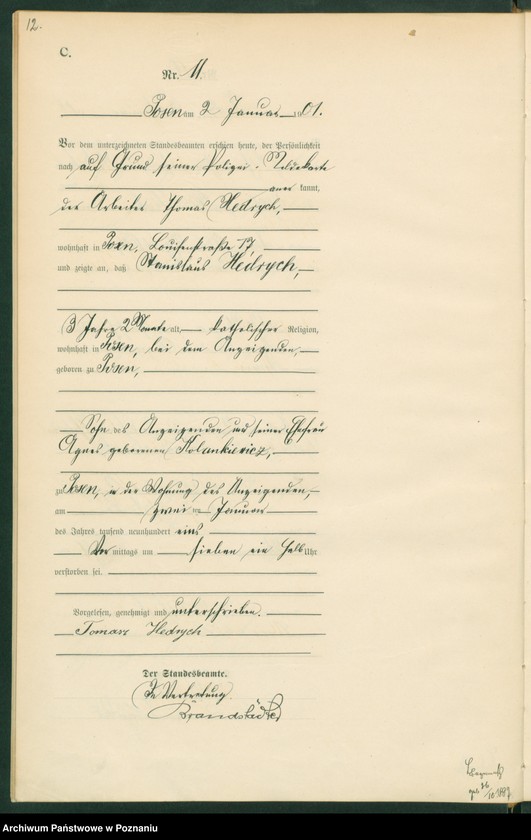 12.
C.
Nr. 11.
Posen am 2 Januar 1901.
Vor dem unterzeichneten Standesbeamten erschien heute, der Persönlichkeit
nach auf Grund seiner Polizei-Meldekarte
aner kannt,
der Arbeiter Thomas Hedrych,
wohnhaft in Posen, Louisenstraße 17,
und zeigte an, daß Stanislaus Hedrych,
3 Jahre 2 Monate alt, katholischer Religion,
wohnhaft in Posen, bei dem Anzeigenden,
geboren zu Posen,
Sohn des Anzeigenden und seiner Ehefrau
Agnes geborenen Kolankiewicz,
zu Posen, in der Wohnung des Anzeigenden,
am zwei ten Januar
des Jahres tausend neunhundert eins
Vor mittags um sieben ein halb Uhr
verstorben sei.
Vorgelesen, genehmigt und unterschrieben.
Tomasz Hedrych
Der Standesbeamte.
In Vertretung.
Brandstädter
geb. 26/10 1897
Archiwum Państwowe w Poznaniu